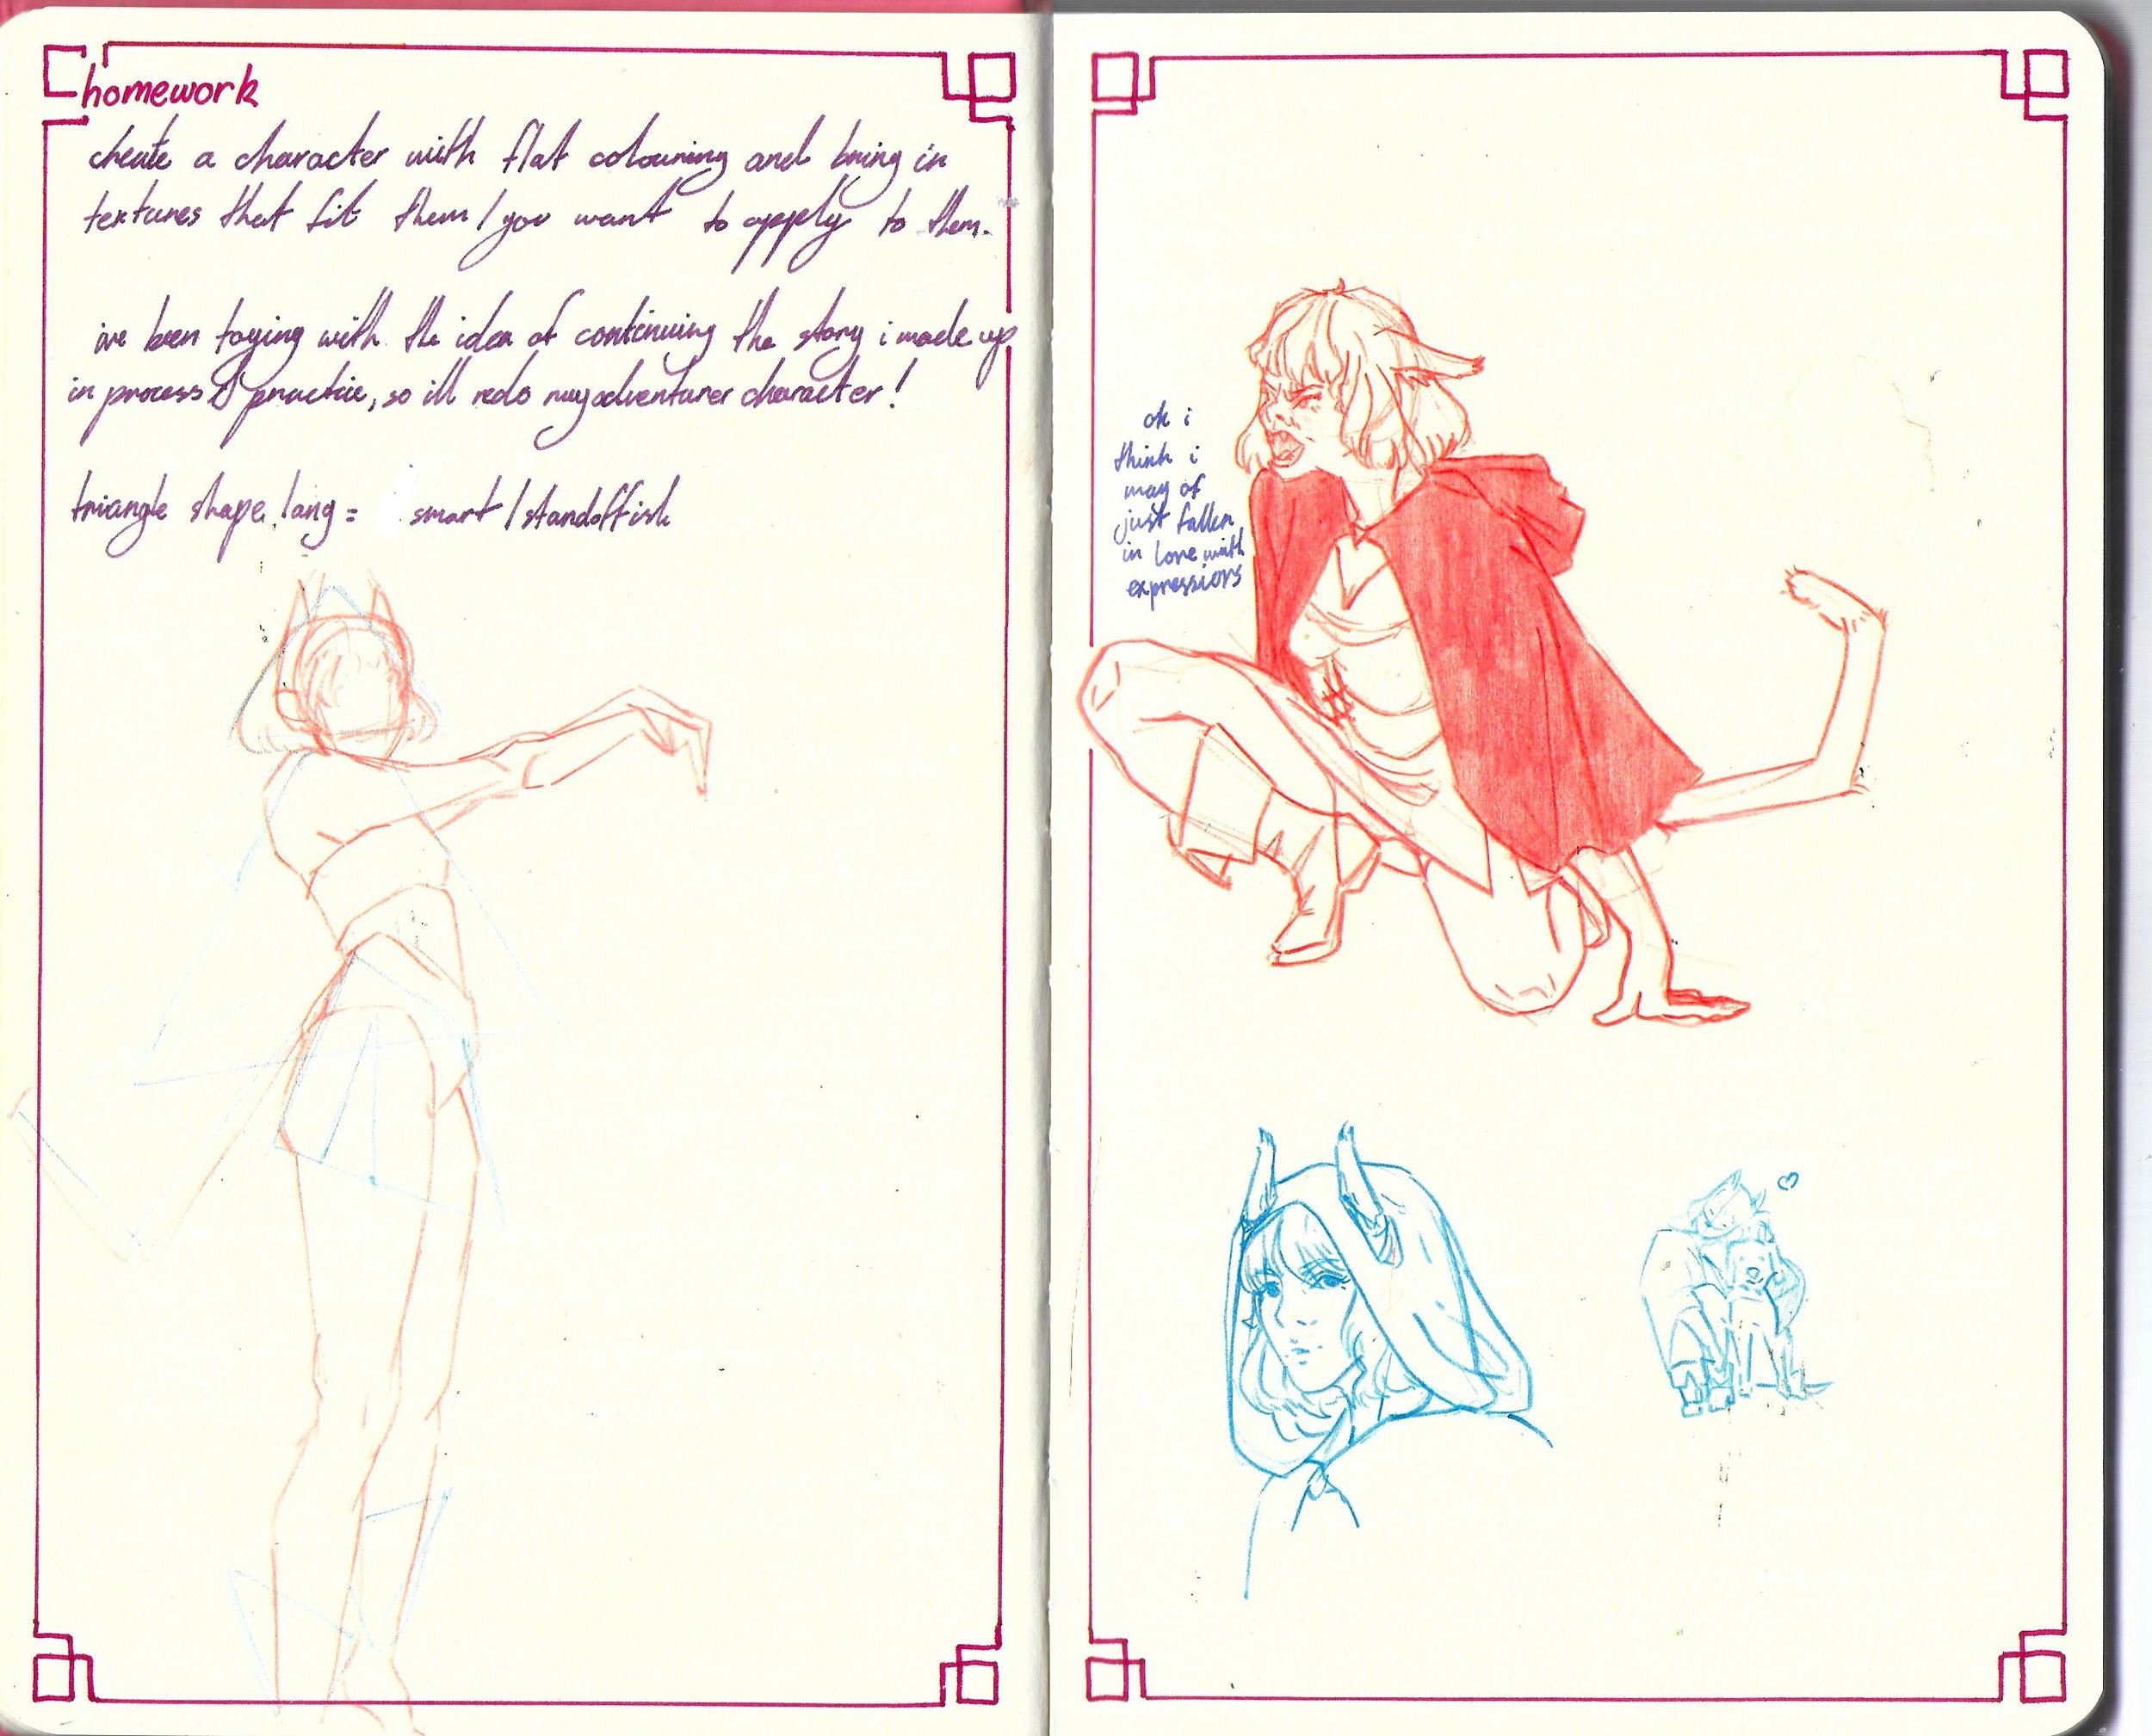 homework
create a character with flat colouring and bring in
textures that fit them / you want to apply to them.
ive been toying with the idea of continuing the story i made up
in process & practice, so ill redo my adventurer character!
triangle shape lang = smart / standoffish
ok i
think i
may of
just fallen
in love with
expressions